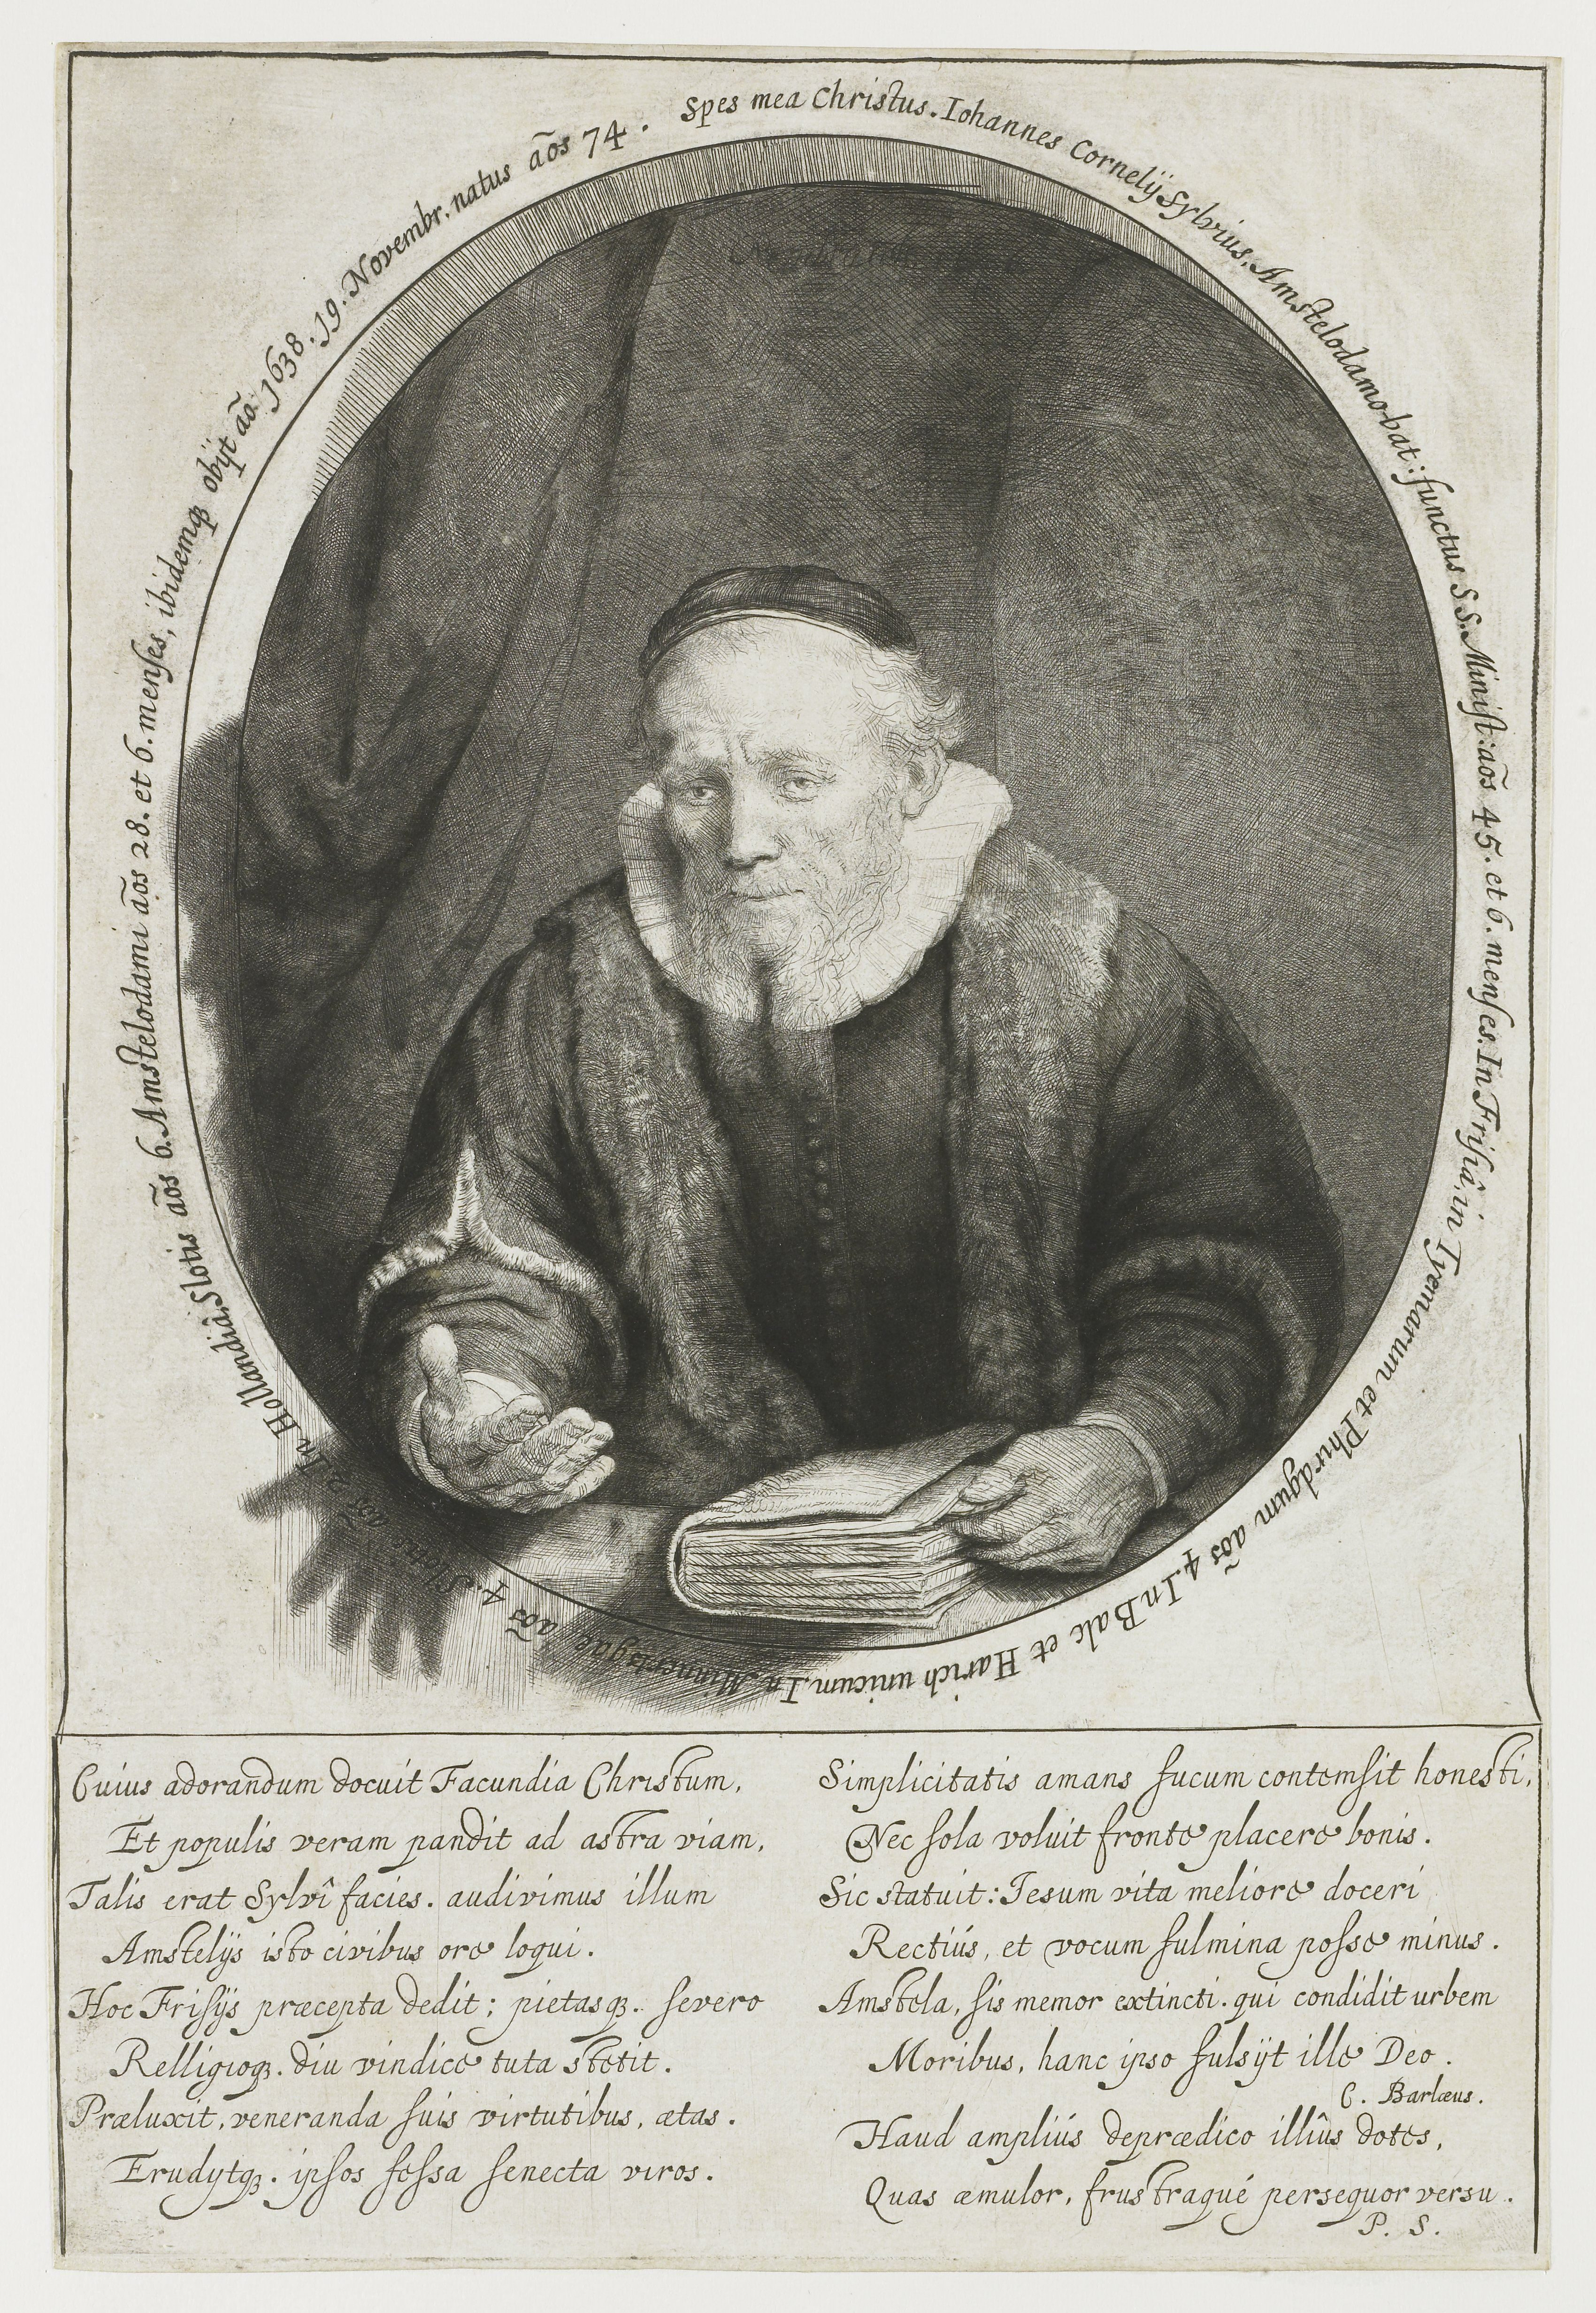 Spes mea Christus. Iohannes Cornelij Sylvius, Amstelodamo-bat: functus S S. Minist: aõs 45. et 6. menses. In Frisiâ, in Tyemarum et Phirdgum aõs 4. In Balc et Harich unicum. In Minnertsgae aõs 4. Slotis aõs 2. In Hollandiâ, Slotis aõs 6. Amstelodami aõs 28. et 6. menses, ibidemqȝ obijt aõ. 1638. 19. Novembr. natus aõs 74.
Cuius adorandum docuit Facundia Christum,
Et populis veram pandit ad astra viam,
Talis erat Sylvî facies. audivimus illum
Amstelijs isto civibus ore loqui.
Hoc Frisijs præcepta dedit; pietasqȝ. severo
Relligioqȝ. diu vindice tuta stetit.
Præluxit, veneranda suis virtutibus, ætas.
Erudytqȝ. ipsos fessa senecta viros.
Simplicitatis amans fucum contemsit honesti,
Nec sola voluit fronte placere bonis.
Sic statuit: Iesum vita meliore doceri
Rectiús, et vocum fulmina posse minus.
Amstela, sis memor extincti. qui condidit urbem
Moribus, hanc ipso fulsijt ille Deo.
C. Barlæus.
Haud ampliús deprædico illîus dotes,
Quas æmulor, frustraqué persequor versu.
P. S.